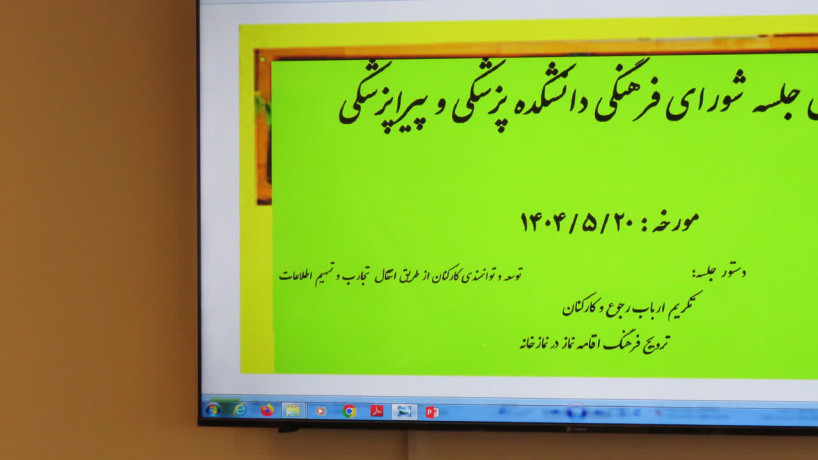 جلسه شورای فرهنگی دانشکده پزشکی و پیراپزشکی
مورخه : ۱۴۰۴/۵/۲۰
دستور جلسه: توسعه و توانمندی کارکنان از طریق انتقال تجارب و تسهیم اطلاعات
تکریم ارباب رجوع و کارکنان
ترویج فرهنگ اقامه نماز در نمازخانه